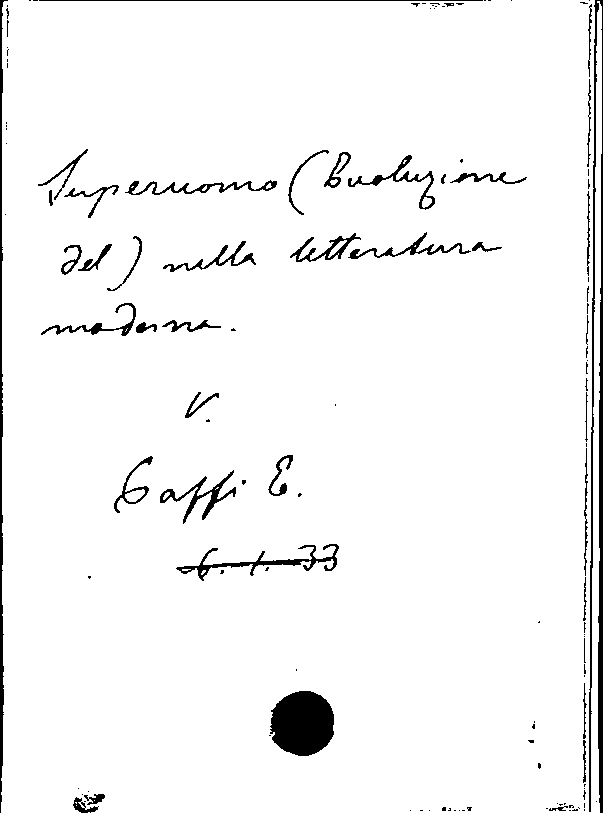 Superuomo (Evoluzione
del) nella letteratura
moderna.
V.
Gaffi E.
6. 1. 33